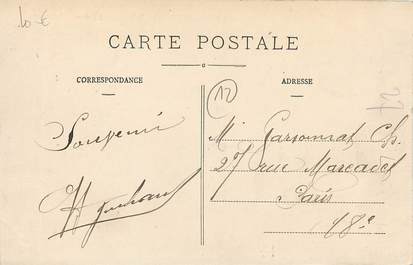 10 €
CARTE POSTALE
CORRESPONDANCE
ADRESSE
12
Souvenir
M. Garsonnat Ch.
27 rue Marcadet
Paris
18e